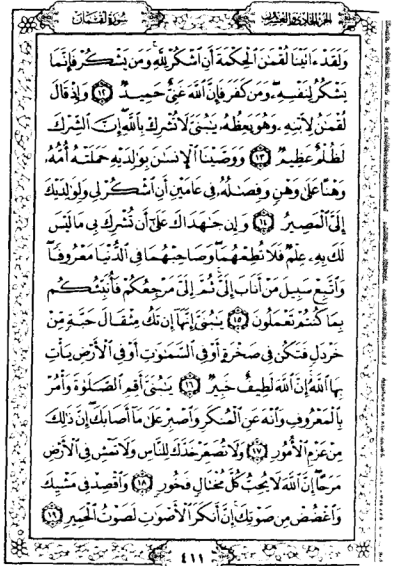 الجزء الحادي والعشرون
سورة لقمان
وَلَقَدْ ءَاتَيْنَا لُقْمَٰنَ ٱلْحِكْمَةَ أَنِ ٱشْكُرْ لِلَّهِ وَمَن يَشْكُرْ فَإِنَّمَا
يَشْكُرُ لِنَفْسِهِۦ وَمَن كَفَرَ فَإِنَّ ٱللَّهَ غَنِىٌّ حَمِيدٌ ١٢ وَإِذْ قَالَ
لُقْمَٰنُ لِٱبْنِهِۦ وَهُوَ يَعِظُهُۥ يَٰبُنَىَّ لَا تُشْرِكْ بِٱللَّهِ إِنَّ ٱلشِّرْكَ
لَظُلْمٌ عَظِيمٌ ١٣ وَوَصَّيْنَا ٱلْإِنسَٰنَ بِوَٰلِدَيْهِ حَمَلَتْهُ أُمُّهُۥ
وَهْنًا عَلَىٰ وَهْنٍ وَفِصَٰلُهُۥ فِى عَامَيْنِ أَنِ ٱشْكُرْ لِى وَلِوَٰلِدَيْكَ
إِلَىَّ ٱلْمَصِيرُ ١٤ وَإِن جَٰهَدَاكَ عَلَىٰٓ أَن تُشْرِكَ بِى مَا لَيْسَ
لَكَ بِهِۦ عِلْمٌ فَلَا تُطِعْهُمَا وَصَاحِبْهُمَا فِى ٱلدُّنْيَا مَعْرُوفًا
وَٱتَّبِعْ سَبِيلَ مَنْ أَنَابَ إِلَىَّ ثُمَّ إِلَىَّ مَرْجِعُكُمْ فَأُنَبِّئُكُم
بِمَا كُنتُمْ تَعْمَلُونَ ١٥ يَٰبُنَىَّ إِنَّهَآ إِن تَكُ مِثْقَالَ حَبَّةٍ مِّنْ
خَرْدَلٍ فَتَكُن فِى صَخْرَةٍ أَوْ فِى ٱلسَّمَٰوَٰتِ أَوْ فِى ٱلْأَرْضِ يَأْتِ
بِهَا ٱللَّهُ إِنَّ ٱللَّهَ لَطِيفٌ خَبِيرٌ ١٦ يَٰبُنَىَّ أَقِمِ ٱلصَّلَوٰةَ وَأْمُرْ
بِٱلْمَعْرُوفِ وَٱنْهَ عَنِ ٱلْمُنكَرِ وَٱصْبِرْ عَلَىٰ مَآ أَصَابَكَ إِنَّ ذَٰلِكَ
مِنْ عَزْمِ ٱلْأُمُورِ ١٧ وَلَا تُصَعِّرْ خَدَّكَ لِلنَّاسِ وَلَا تَمْشِ فِى ٱلْأَرْضِ
مَرَحًا إِنَّ ٱللَّهَ لَا يُحِبُّ كُلَّ مُخْتَالٍ فَخُورٍ ١٨ وَٱقْصِدْ فِى مَشْيِكَ
وَٱغْضُضْ مِن صَوْتِكَ إِنَّ أَنكَرَ ٱلْأَصْوَٰتِ لَصَوْتُ ٱلْحَمِيرِ ١٩
٤١١